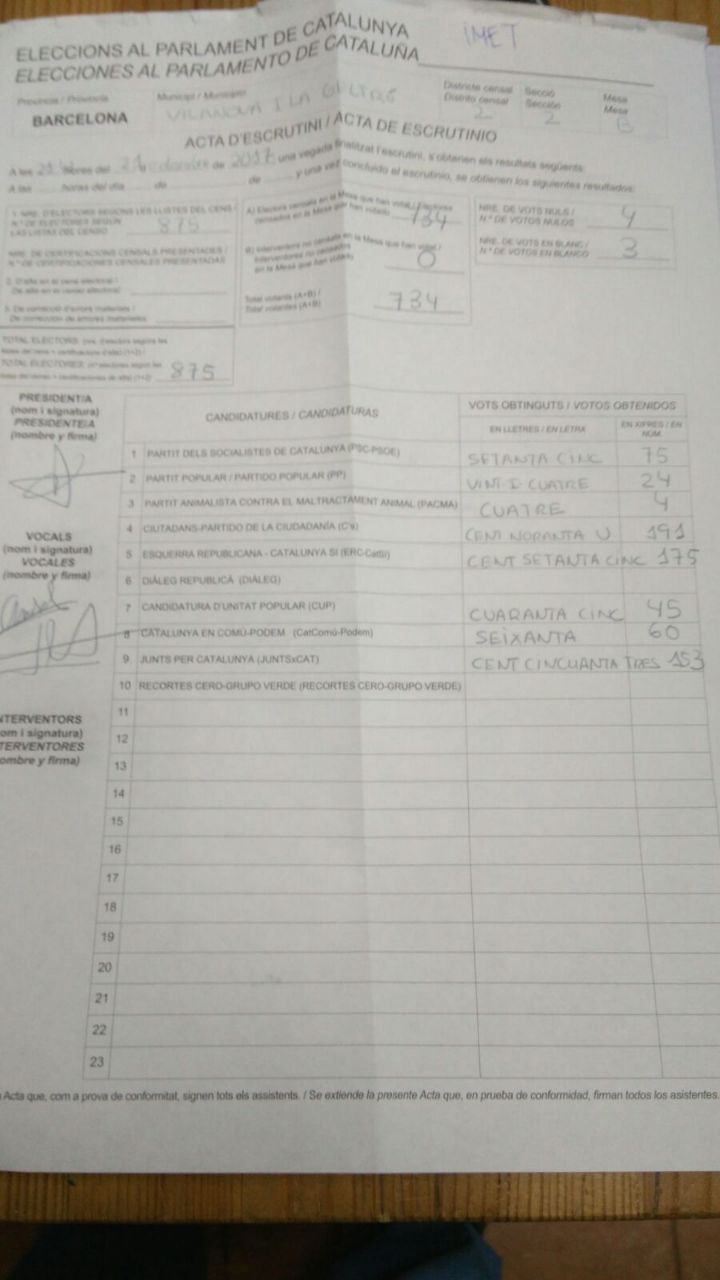 iMET
ELECCIONS AL PARLAMENT DE CATALUNYA
ELECCIONES AL PARLAMENTO DE CATALUÑA
Província / Provincia
Municipi / Municipio
Districte censal
Distrito censal
Secció
Sección
Mesa
Mesa
BARCELONA
VILANOVA I LA GELTRÚ
2
2
B
ACTA D'ESCRUTINI / ACTA DE ESCRUTINIO
A les hores del 21 de de 2017 una vegada finalitzat l'escrutini, s'obtenen els resultats següents:
A las horas del día de de y una vez concluido el escrutinio, se obtienen los siguientes resultados:
1. NRE. D'ELECTORS SEGONS LES LLISTES DEL CENS /
N.º DE ELECTORES SEGÚN
LAS LISTAS DEL CENSO
875
NRE. DE CERTIFICACIONS CENSALS PRESENTADES /
N.º DE CERTIFICACIONES CENSALES PRESENTADAS
2. D'alta en el cens electoral /
De alta en el censo electoral
3. De correcció d'errors materials /
De corrección de errores materiales
TOTAL ELECTORS:
TOTAL ELECTORES:
875
A) Electors censats en la Mesa que han votat / Electores
censados en la Mesa que han votado
734
B) Interventors no censats en la Mesa que han votat /
Interventores no censados
en la Mesa que han votado
0
Total votants (A+B) /
Total votantes (A+B)
734
NRE. DE VOTS NULS /
N.º DE VOTOS NULOS
4
NRE. DE VOTS EN BLANC /
N.º DE VOTOS EN BLANCO
3
PRESIDENT/A
(nom i signatura)
PRESIDENTE/A
(nombre y firma)
CANDIDATURES / CANDIDATURAS
VOTS OBTINGUTS / VOTOS OBTENIDOS
EN LLETRES / EN LETRA
EN XIFRES / EN NÚM.
1 PARTIT DELS SOCIALISTES DE CATALUNYA (PSC-PSOE) SETANTA CINC 75
2 PARTIT POPULAR / PARTIDO POPULAR (PP) VINT-I-CUATRE 24
3 PARTIT ANIMALISTA CONTRA EL MALTRACTAMENT ANIMAL (PACMA) CUATRE 4
4 CIUTADANS-PARTIDO DE LA CIUDADANÍA (C's) CENT NORANTA U 191
5 ESQUERRA REPUBLICANA - CATALUNYA SÍ (ERC-CatSí) CENT SETANTA CINC 175
6 DIÀLEG REPUBLICÀ (DIÀLEG)
7 CANDIDATURA D'UNITAT POPULAR (CUP) CUARANTA CINC 45
8 CATALUNYA EN COMÚ-PODEM (CatComú-Podem) SEIXANTA 60
9 JUNTS PER CATALUNYA (JUNTSxCAT) CENT CINCUANTA TRES 153
10 RECORTES CERO-GRUPO VERDE (RECORTES CERO-GRUPO VERDE)
VOCALS
(nom i signatura)
VOCALES
(nombre y firma)
NTERVENTORS
om i signatura)
TERVENTORES
ombre y firma)
11
12
13
14
15
16
17
18
19
20
21
22
23
Acta que, com a prova de conformitat, signen tots els assistents. / Se extiende la presente Acta que, en prueba de conformidad, firman todos los asistentes.